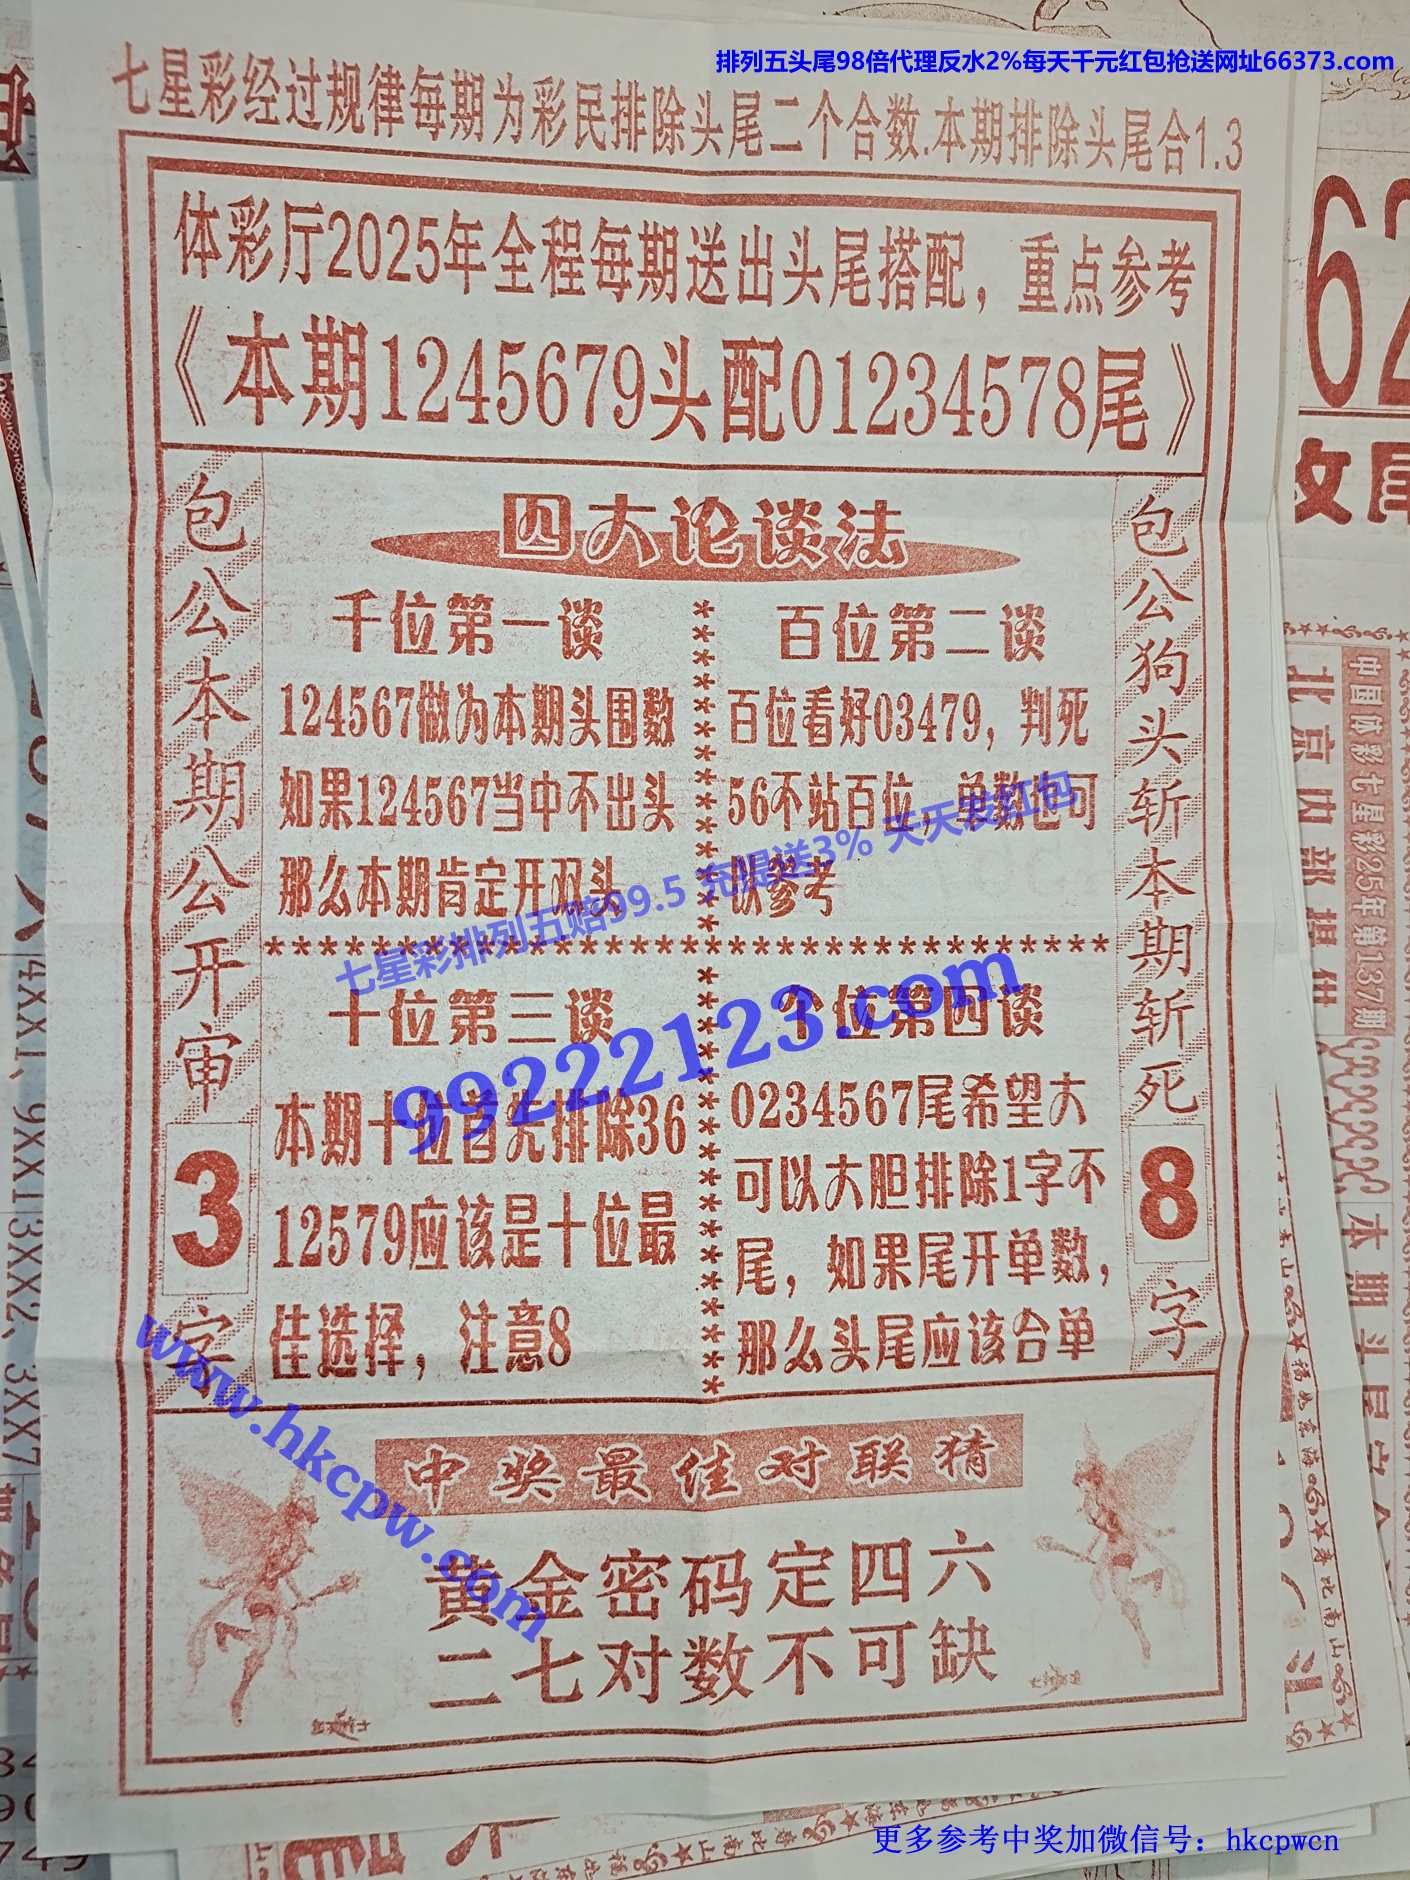 排列五头尾98倍代理反水2%每天千元红包抢送网址66373.com
七星彩经过规律每期为彩民排除头尾二个合数.本期排除头尾合1.3
体彩厅2025年全程每期送出头尾搭配，重点参考
《本期1245679头配01234578尾》
包公本期公开审3字
四大论谈法
千位第一谈
124567做为本期头围数
如果124567当中不出头
那么本期肯定开双头
百位第二谈
百位看好03479，判死
56不站百位，单数也可
以参考
七星彩排列五赔99.5 充提送3% 天天发红包
十位第三谈
本期十位首先排除36
12579应该是十位最
佳选择，注意8
个位第四谈
0234567尾希望大
可以大胆排除1字不
尾，如果尾开单数，
那么头尾应该合单
99222123.com
包公狗头斩本期斩死8字
www.hkcpw.com
中奖最佳对联猜
黄金密码定四六
二七对数不可缺
62
北京内部提供
中国体彩七星彩25年第137期
本期头尾定合
4XX1、9XX1
3XX2、3XX7
更多参考中奖加微信号：hkcpwcn